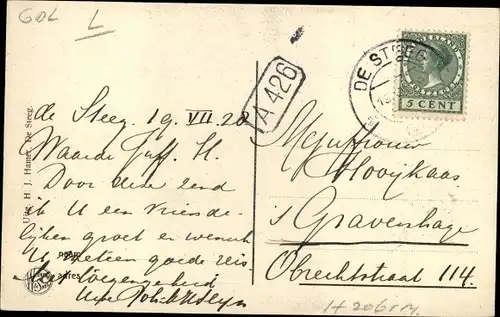 GOL L
A 426
DE STEEG
NEDERLAND
5 CENT
de Steeg 19 VII 28
Waarde Juff. H.
Door deze zend
ik U een vriende-
lijken groet en wensch
U meteen goede reis
adres
Mejuffrouw
Hooijkaas
's Gravenhage
Obrechtstraat 114.
Uitg. H. J. Hamer, De Steeg.